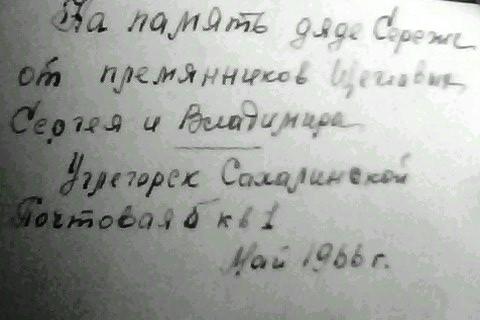 На память дяде Сереже
от премянников Щегловых
Сергея и Владимира
Углегорск Сахалинской
Почтовая 5 кв 1
Май 1966 г.